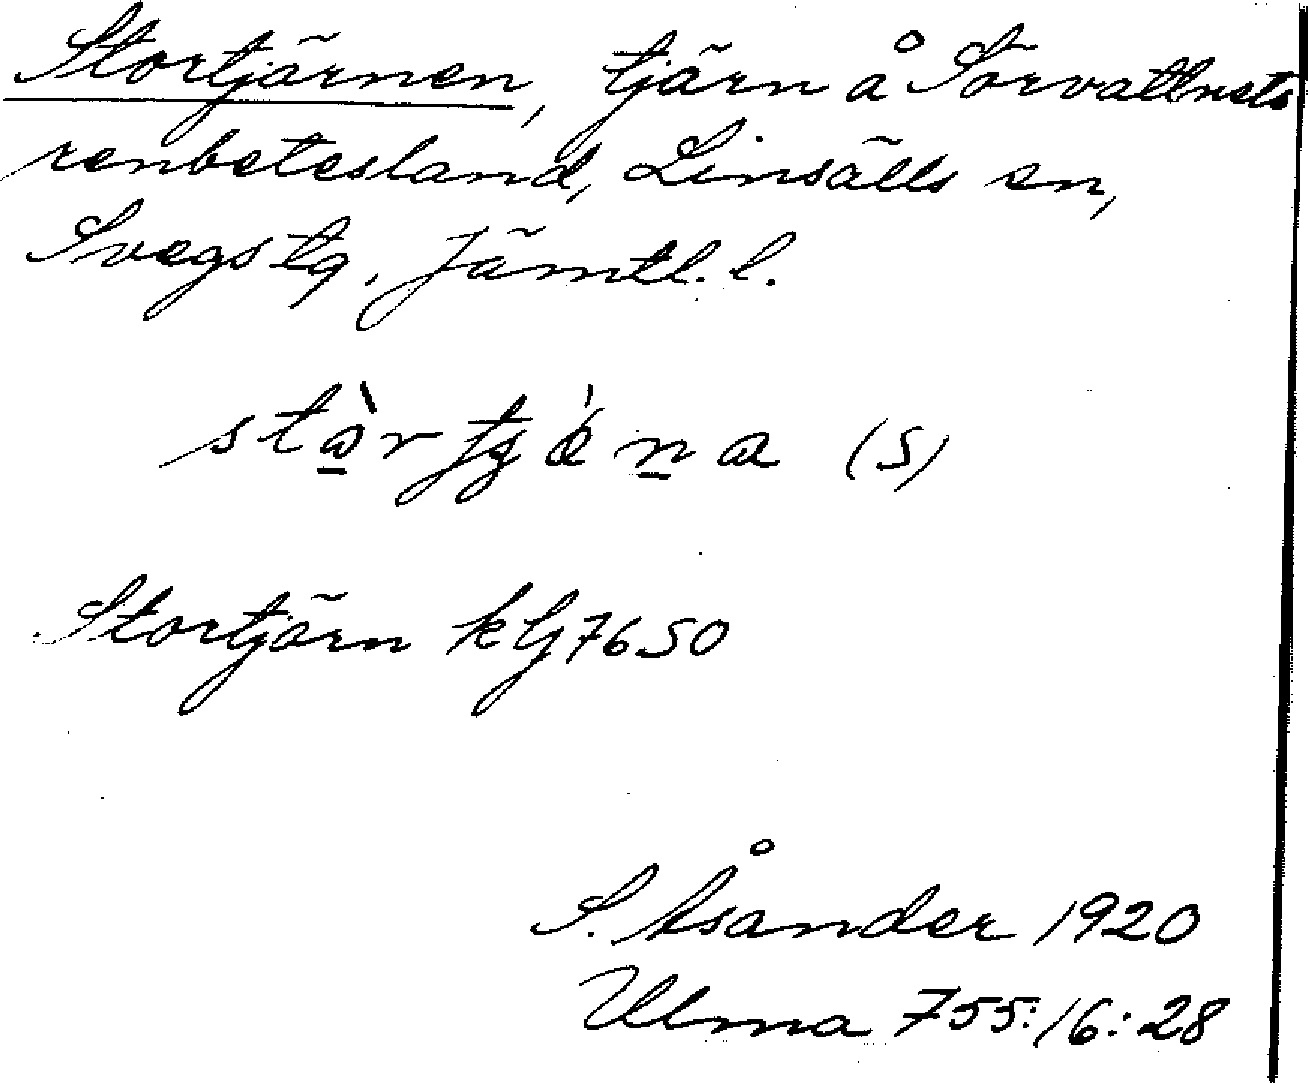 Stortjärnen, tjärn å Torvattnets
renbetesland, Linsälls sn,
Svegs tg, Jämtl. l.
(S)
Stortjärn k Gj 7650
S. Åsander 1920
Ulma 755:16:28